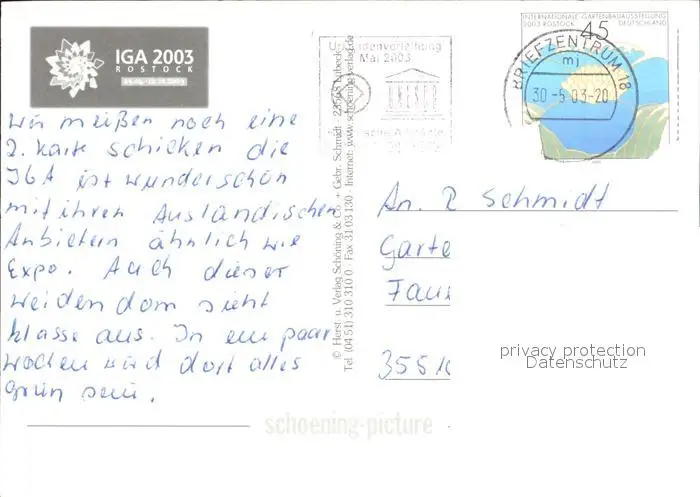 IGA 2003
ROSTOCK
Wir meißen noch eine
2. Karte schicken die
IGA ist wunderschön
mit ihren Ausländischen
Anbietern ähnlich wie
Expo. Auch dieser
Weidendom sieht
klasse aus. In ein paar
Wochen wird dort alles
Grün sein.
© Herst. u. Verlag Schöning & Co. + Gebr. Schmidt · 23563 Lübeck
Tel. (04 51) 310 310 0 · Fax 31 03 130 · Internet: www.schoening-verlag.de
Urkundenverleihung
Mai 2003
UNESCO
INTERNATIONALE GARTENBAUAUSSTELLUNG
2003 ROSTOCK DEUTSCHLAND
45
BRIEFZENTRUM 18
mj
30-5 03-20
An. R Schmidt
Garte
Faus
355
privacy protection
Datenschutz
schoening-picture